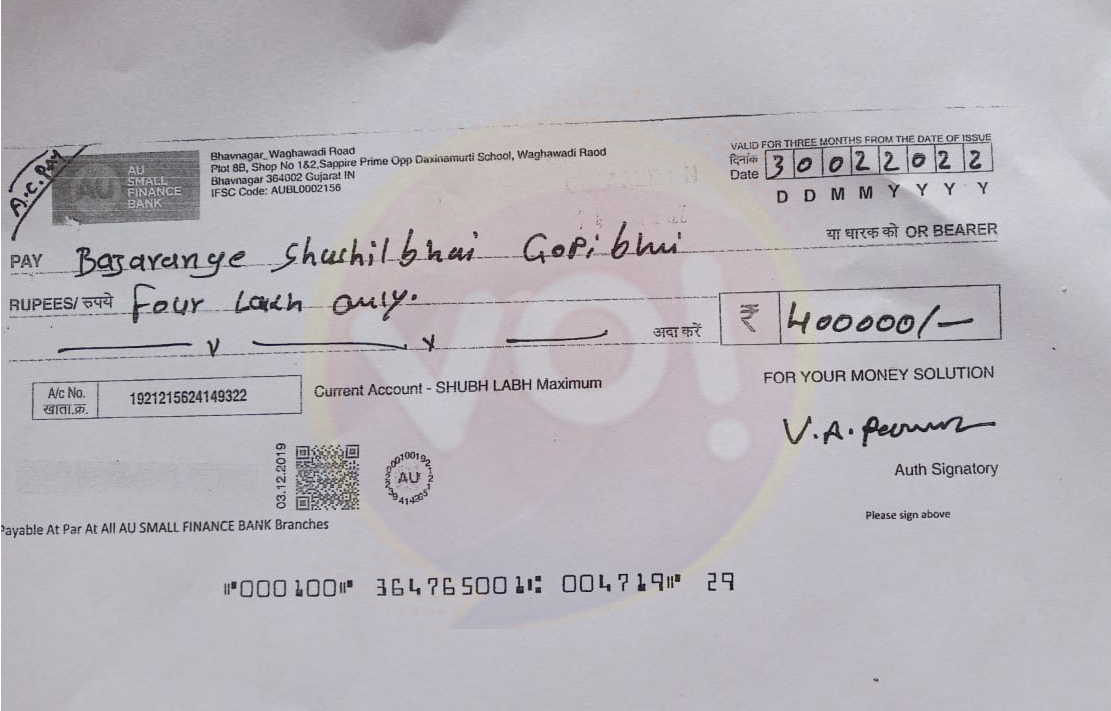 A.C. Pay
AU
SMALL
FINANCE
BANK
Bhavnagar_Waghawadi Road
Plot 8B, Shop No 1&2,Sappire Prime Opp Daxinamurti School, Waghawadi Raod
Bhavnagar 364002 Gujarat IN
IFSC Code: AUBL0002156
VALID FOR THREE MONTHS FROM THE DATE OF ISSUE
दिनांक
Date 30022022
D D M M Y Y Y Y
PAY Bajarange Shushilbhai Gopibhai
या धारक को OR BEARER
RUPEES/ रुपये Four Lakh only.
अदा करें ₹ 400000/-
A/c No.
खाता.क्र. 1921215624149322
Current Account - SHUBH LABH Maximum
FOR YOUR MONEY SOLUTION
Auth Signatory
Please sign above
03.12.2019
AU
Payable At Par At All AU SMALL FINANCE BANK Branches
⑈000100⑈ 364765001⑆ 004719⑈ 29
VO!